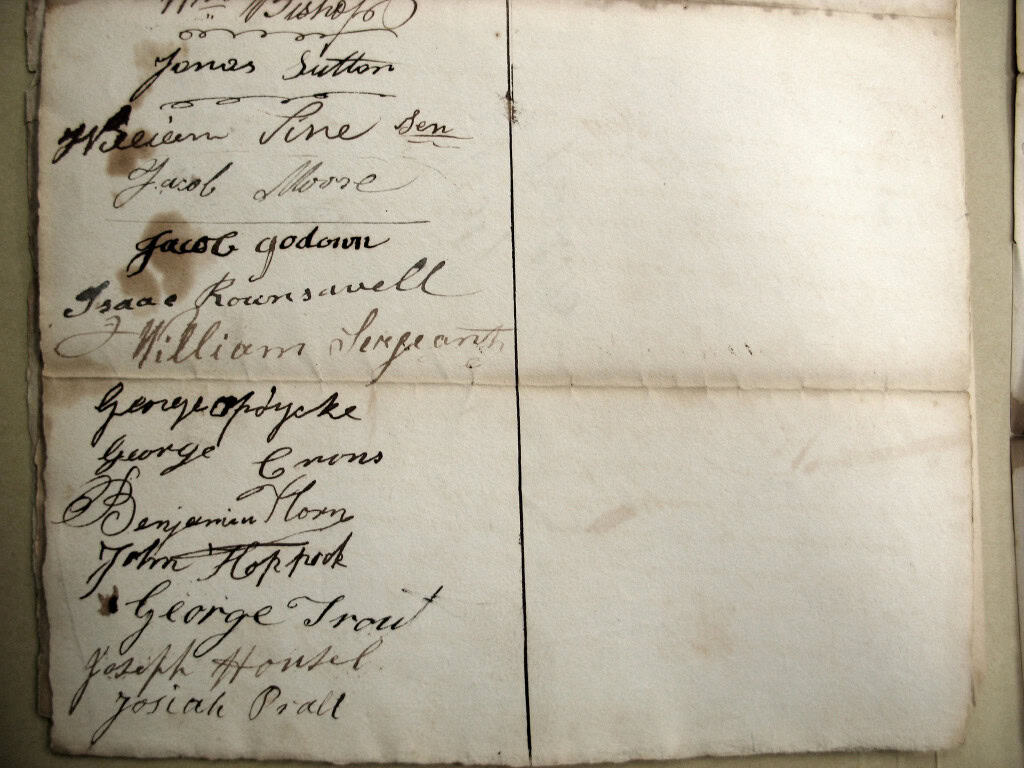 Wm Bishop
Jonas Sutton
William Sine Sen
Jacob Moore
Jacob godown
Isaac Rounsavell
William Sergeant
George opdycke
George Crons
Benjamin Horn
John Hoppock
George Trout
Joseph Housel
Josiah Prall